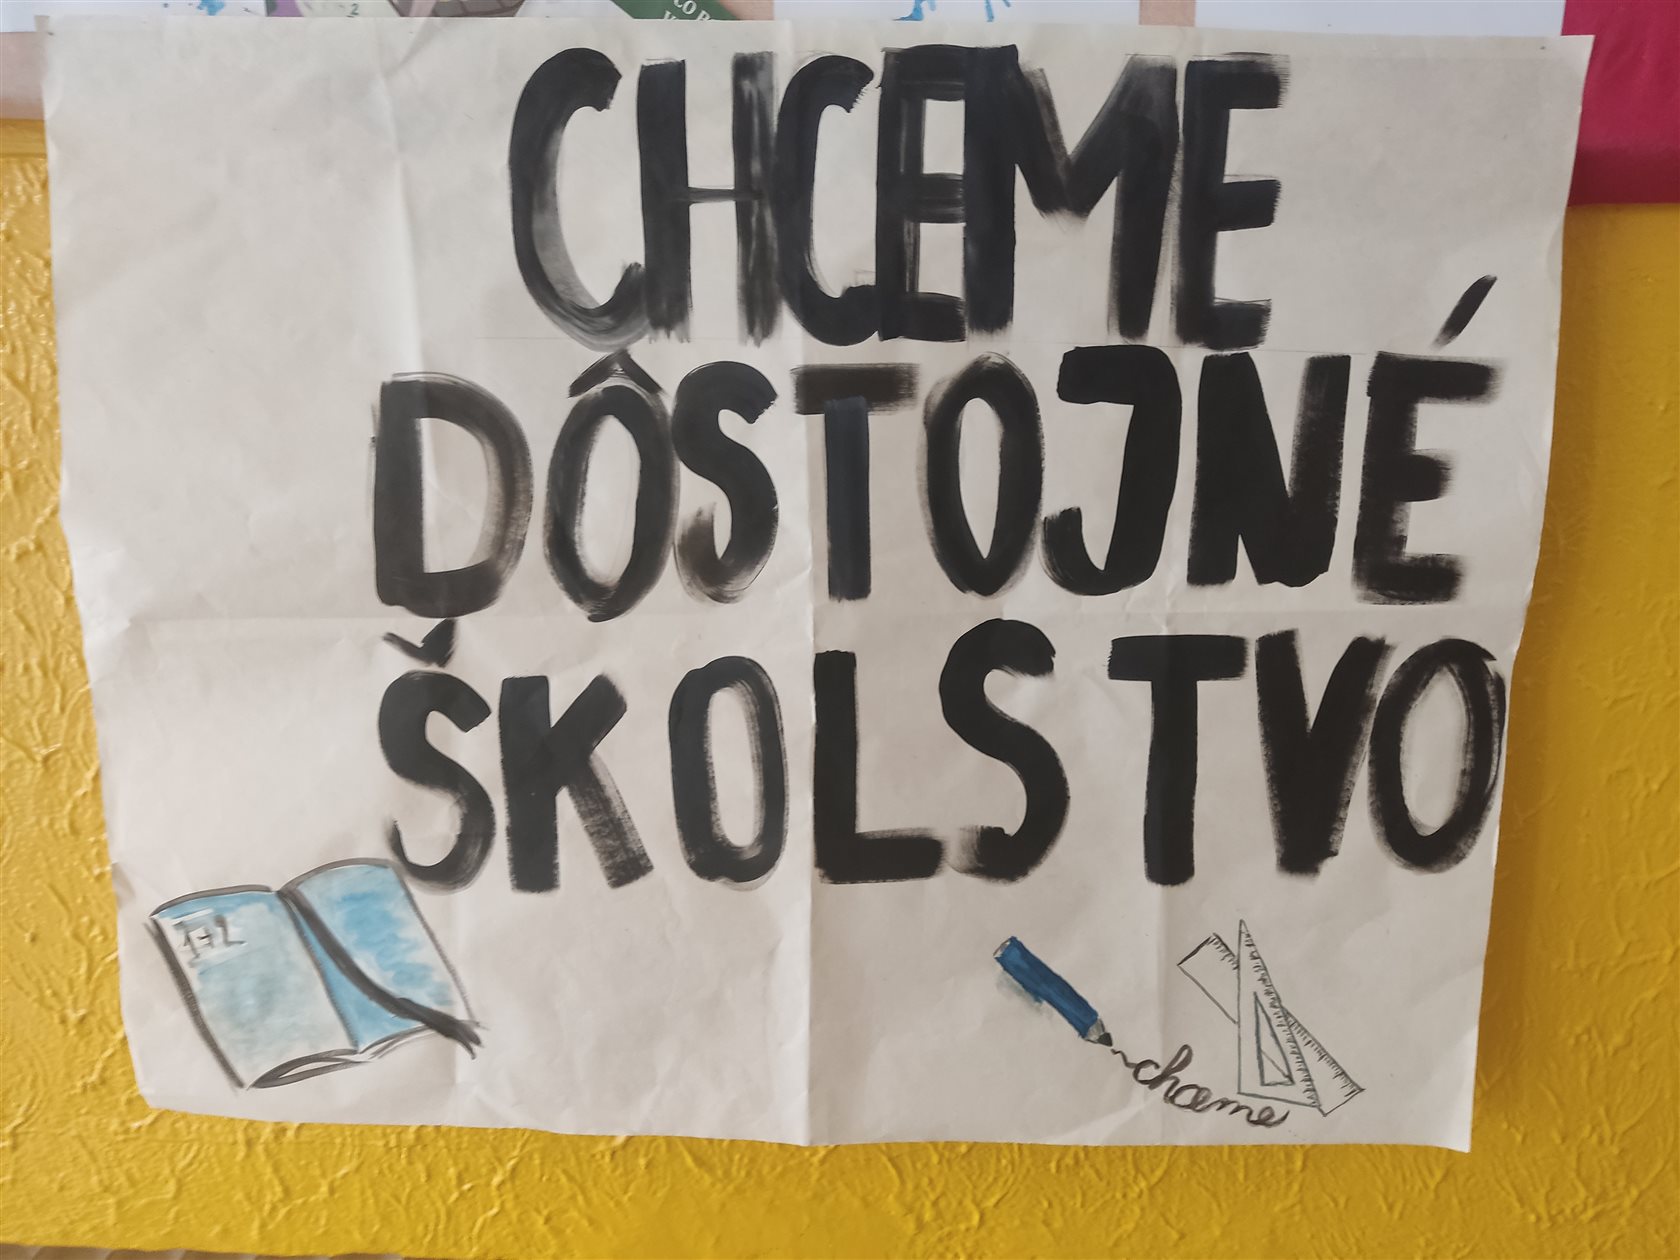 CHCEME
DÔSTOJNÉ
ŠKOLSTVO
chceme